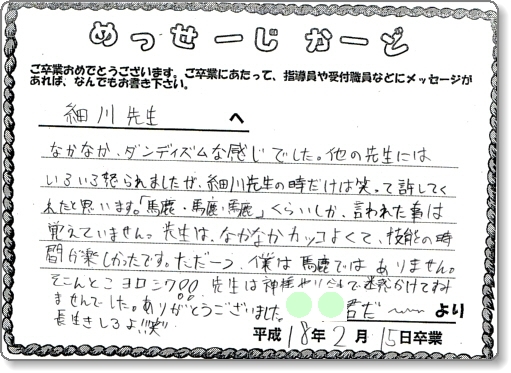 めっせーじ かーど
ご卒業おめでとうございます。ご卒業にあたって、指導員や受付職員などにメッセージが
あれば、なんでもお書き下さい。
細川先生 へ
なかなか、ダンディズムな感じでした。他の先生には
いろいろ怒られましたが、細川先生の時だけは笑って許してく
れたと思います。「馬鹿・馬鹿・馬鹿」くらいしか、言われた事は
覚えていません。先生は、なかなかカッコよくて、技能の時
間が楽しかったです。ただ一つ、僕は馬鹿ではありません。
そこんとこヨロシク!!! 先生は神様 で迷惑かけてすみ
ませんでした。ありがとうございました。 君だ〜 より
長生きしろよ!!!笑
平成18年2月15日卒業